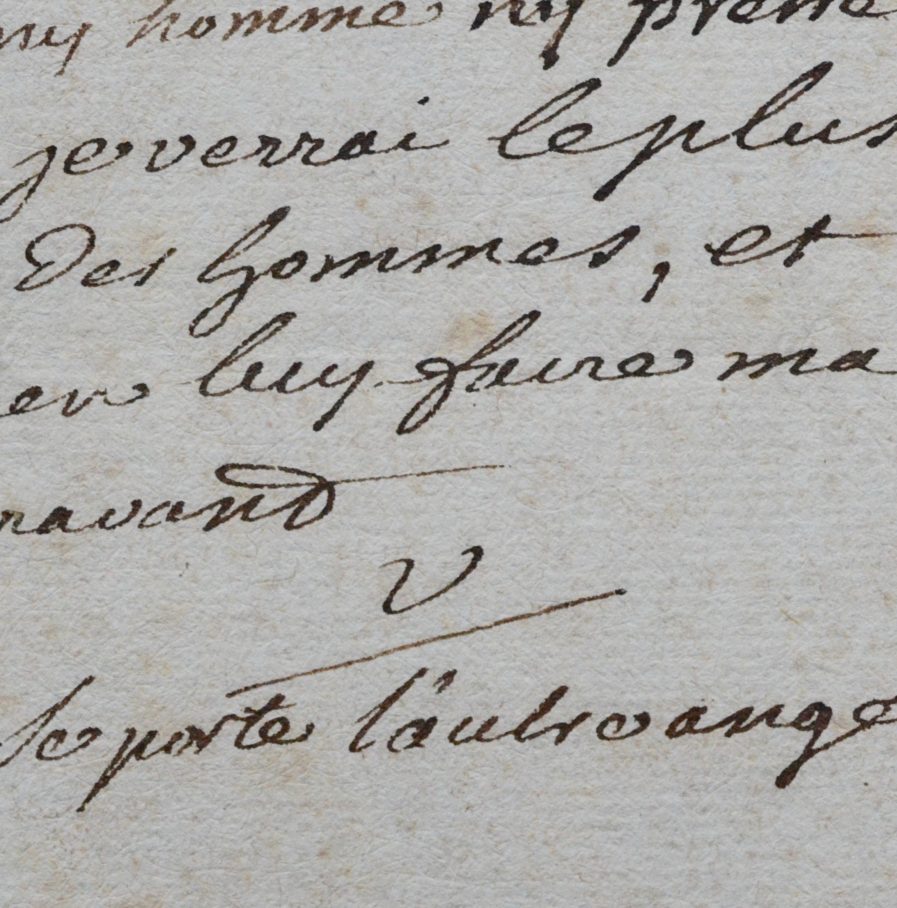 ny homme ny preste
je verrai le plus
Des hommes, et
en luy faire ma
ravand
V
se porte l'aultre ange